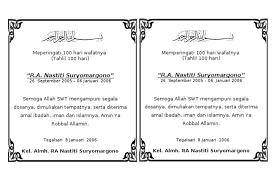 Meperingati 100 hari wafatnya
(Tahlil 100 hari)
"R.A. Nastiti Suryomargono"
26 September 2005 – 06 Januari 2006
Semoga Allah SWT mengampuni segala
dosanya, dimuliakan tempatnya, serta diterima
amal ibadah, iman dan islamnya, Amin Ya
Robbal Allamin.
Tegalsari 8 Januari 2006
Kel. Almh. RA Nastiti Suryomargono
Meperingati 100 hari wafatnya
(Tahlil 100 hari)
"R.A. Nastiti Suryomargono"
26 September 2005 – 06 Januari 2006
Semoga Allah SWT mengampuni segala
dosanya, dimuliakan tempatnya, serta diterima
amal ibadah, iman dan islamnya, Amin Ya
Robbal Allamin.
Tegalsari 8 Januari 2006
Kel. Almh. RA Nastiti Suryomargono